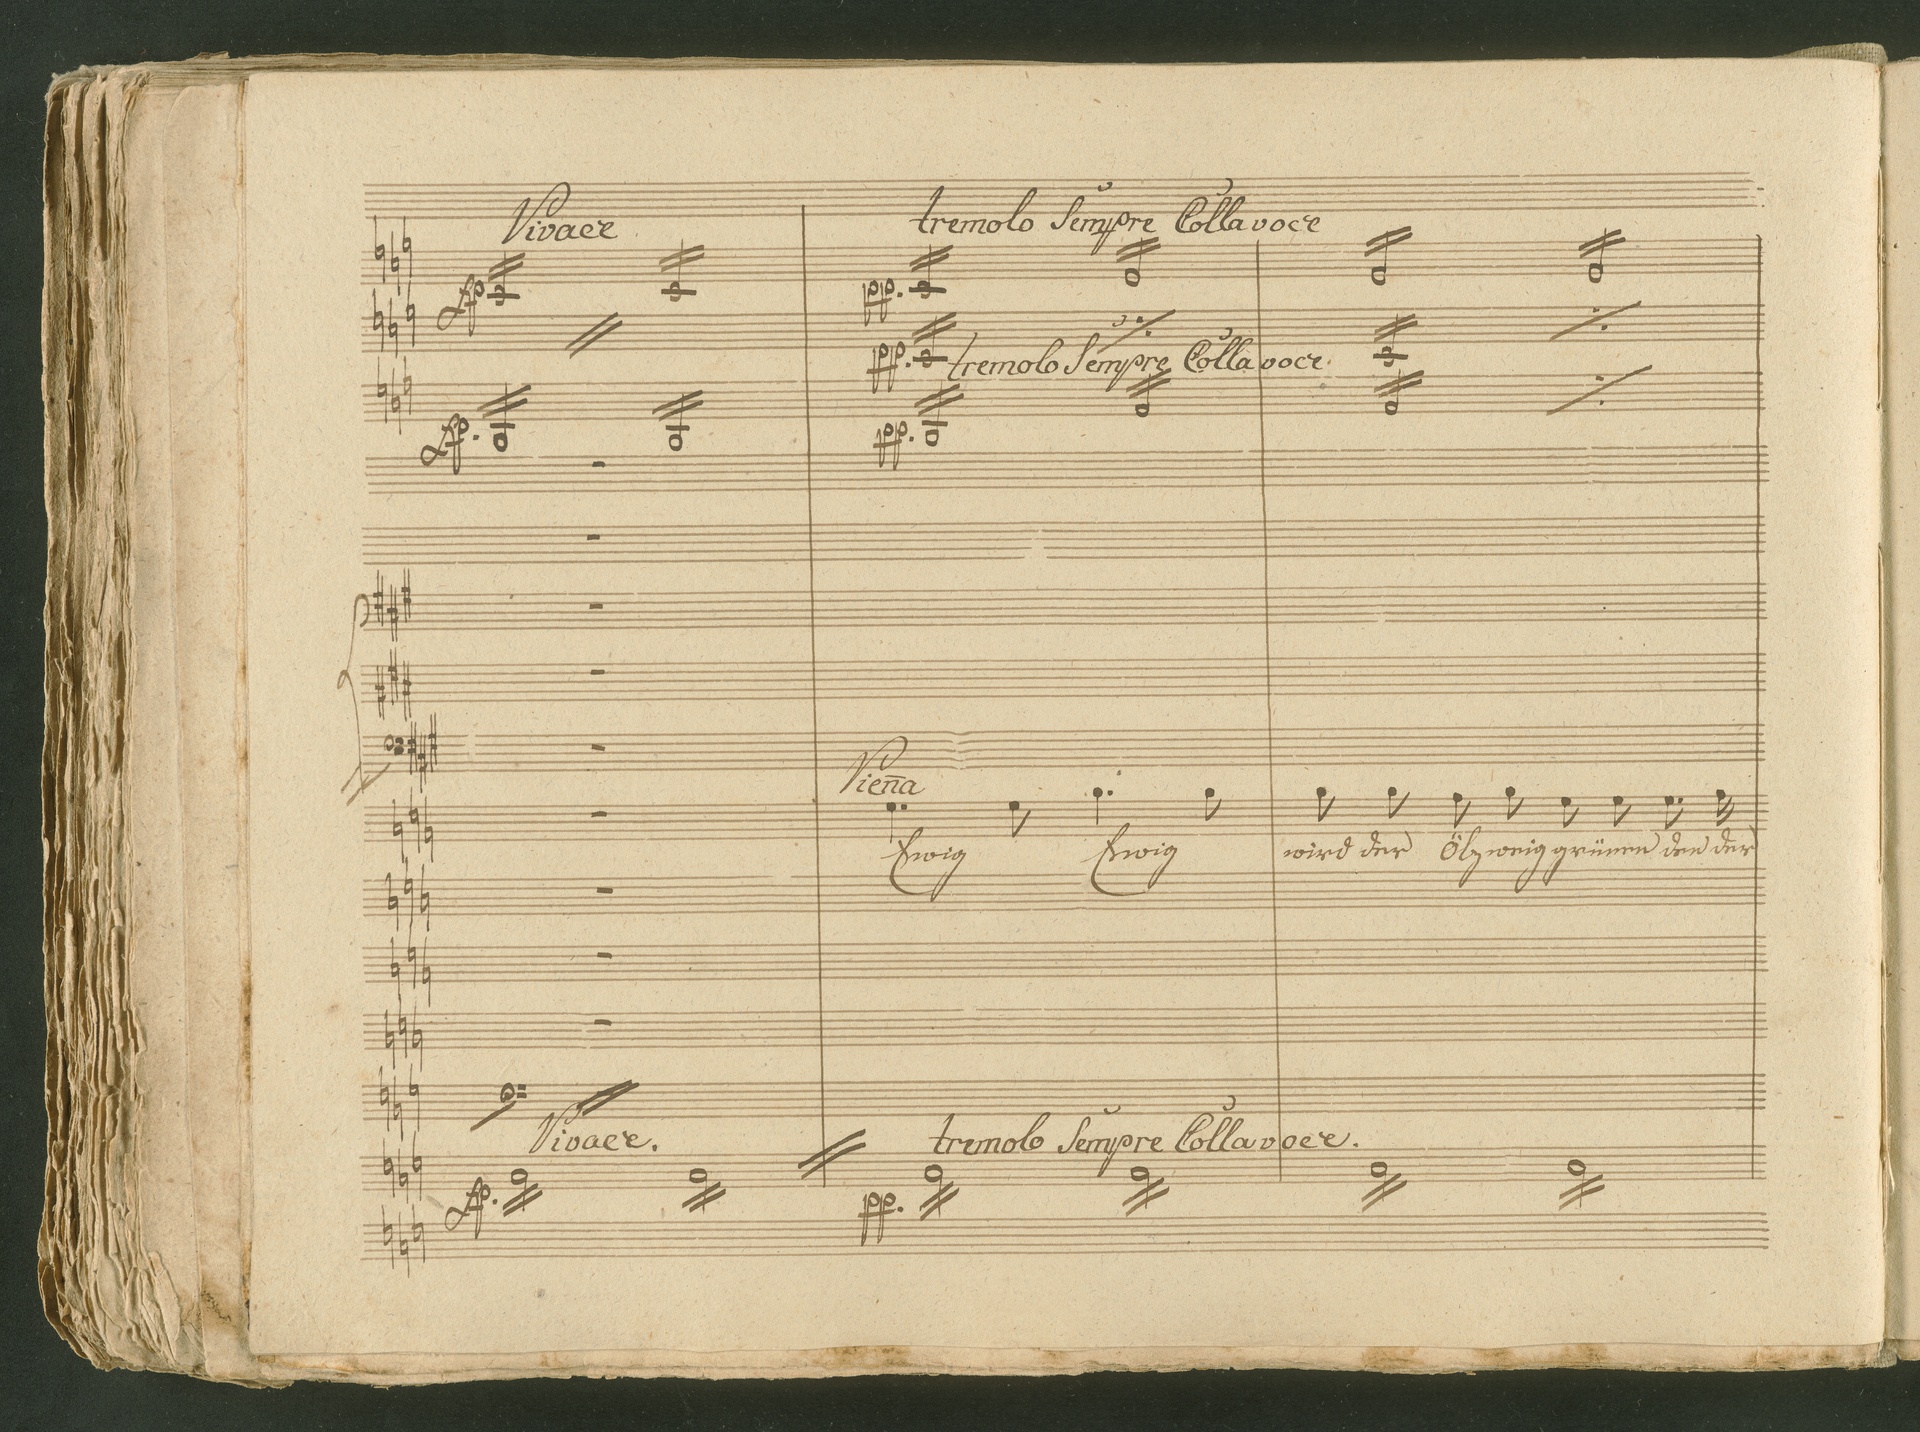 Vivace
tremolo Sempre Colla voce
fp
pp.
pp. tremolo Sempre Colla voce
fp.
pp.
Vien̄a
Ewig Ewig wird der Ölzweig grünen den der
Vivace.
tremolo Sempre Colla voce.
fp.
pp.